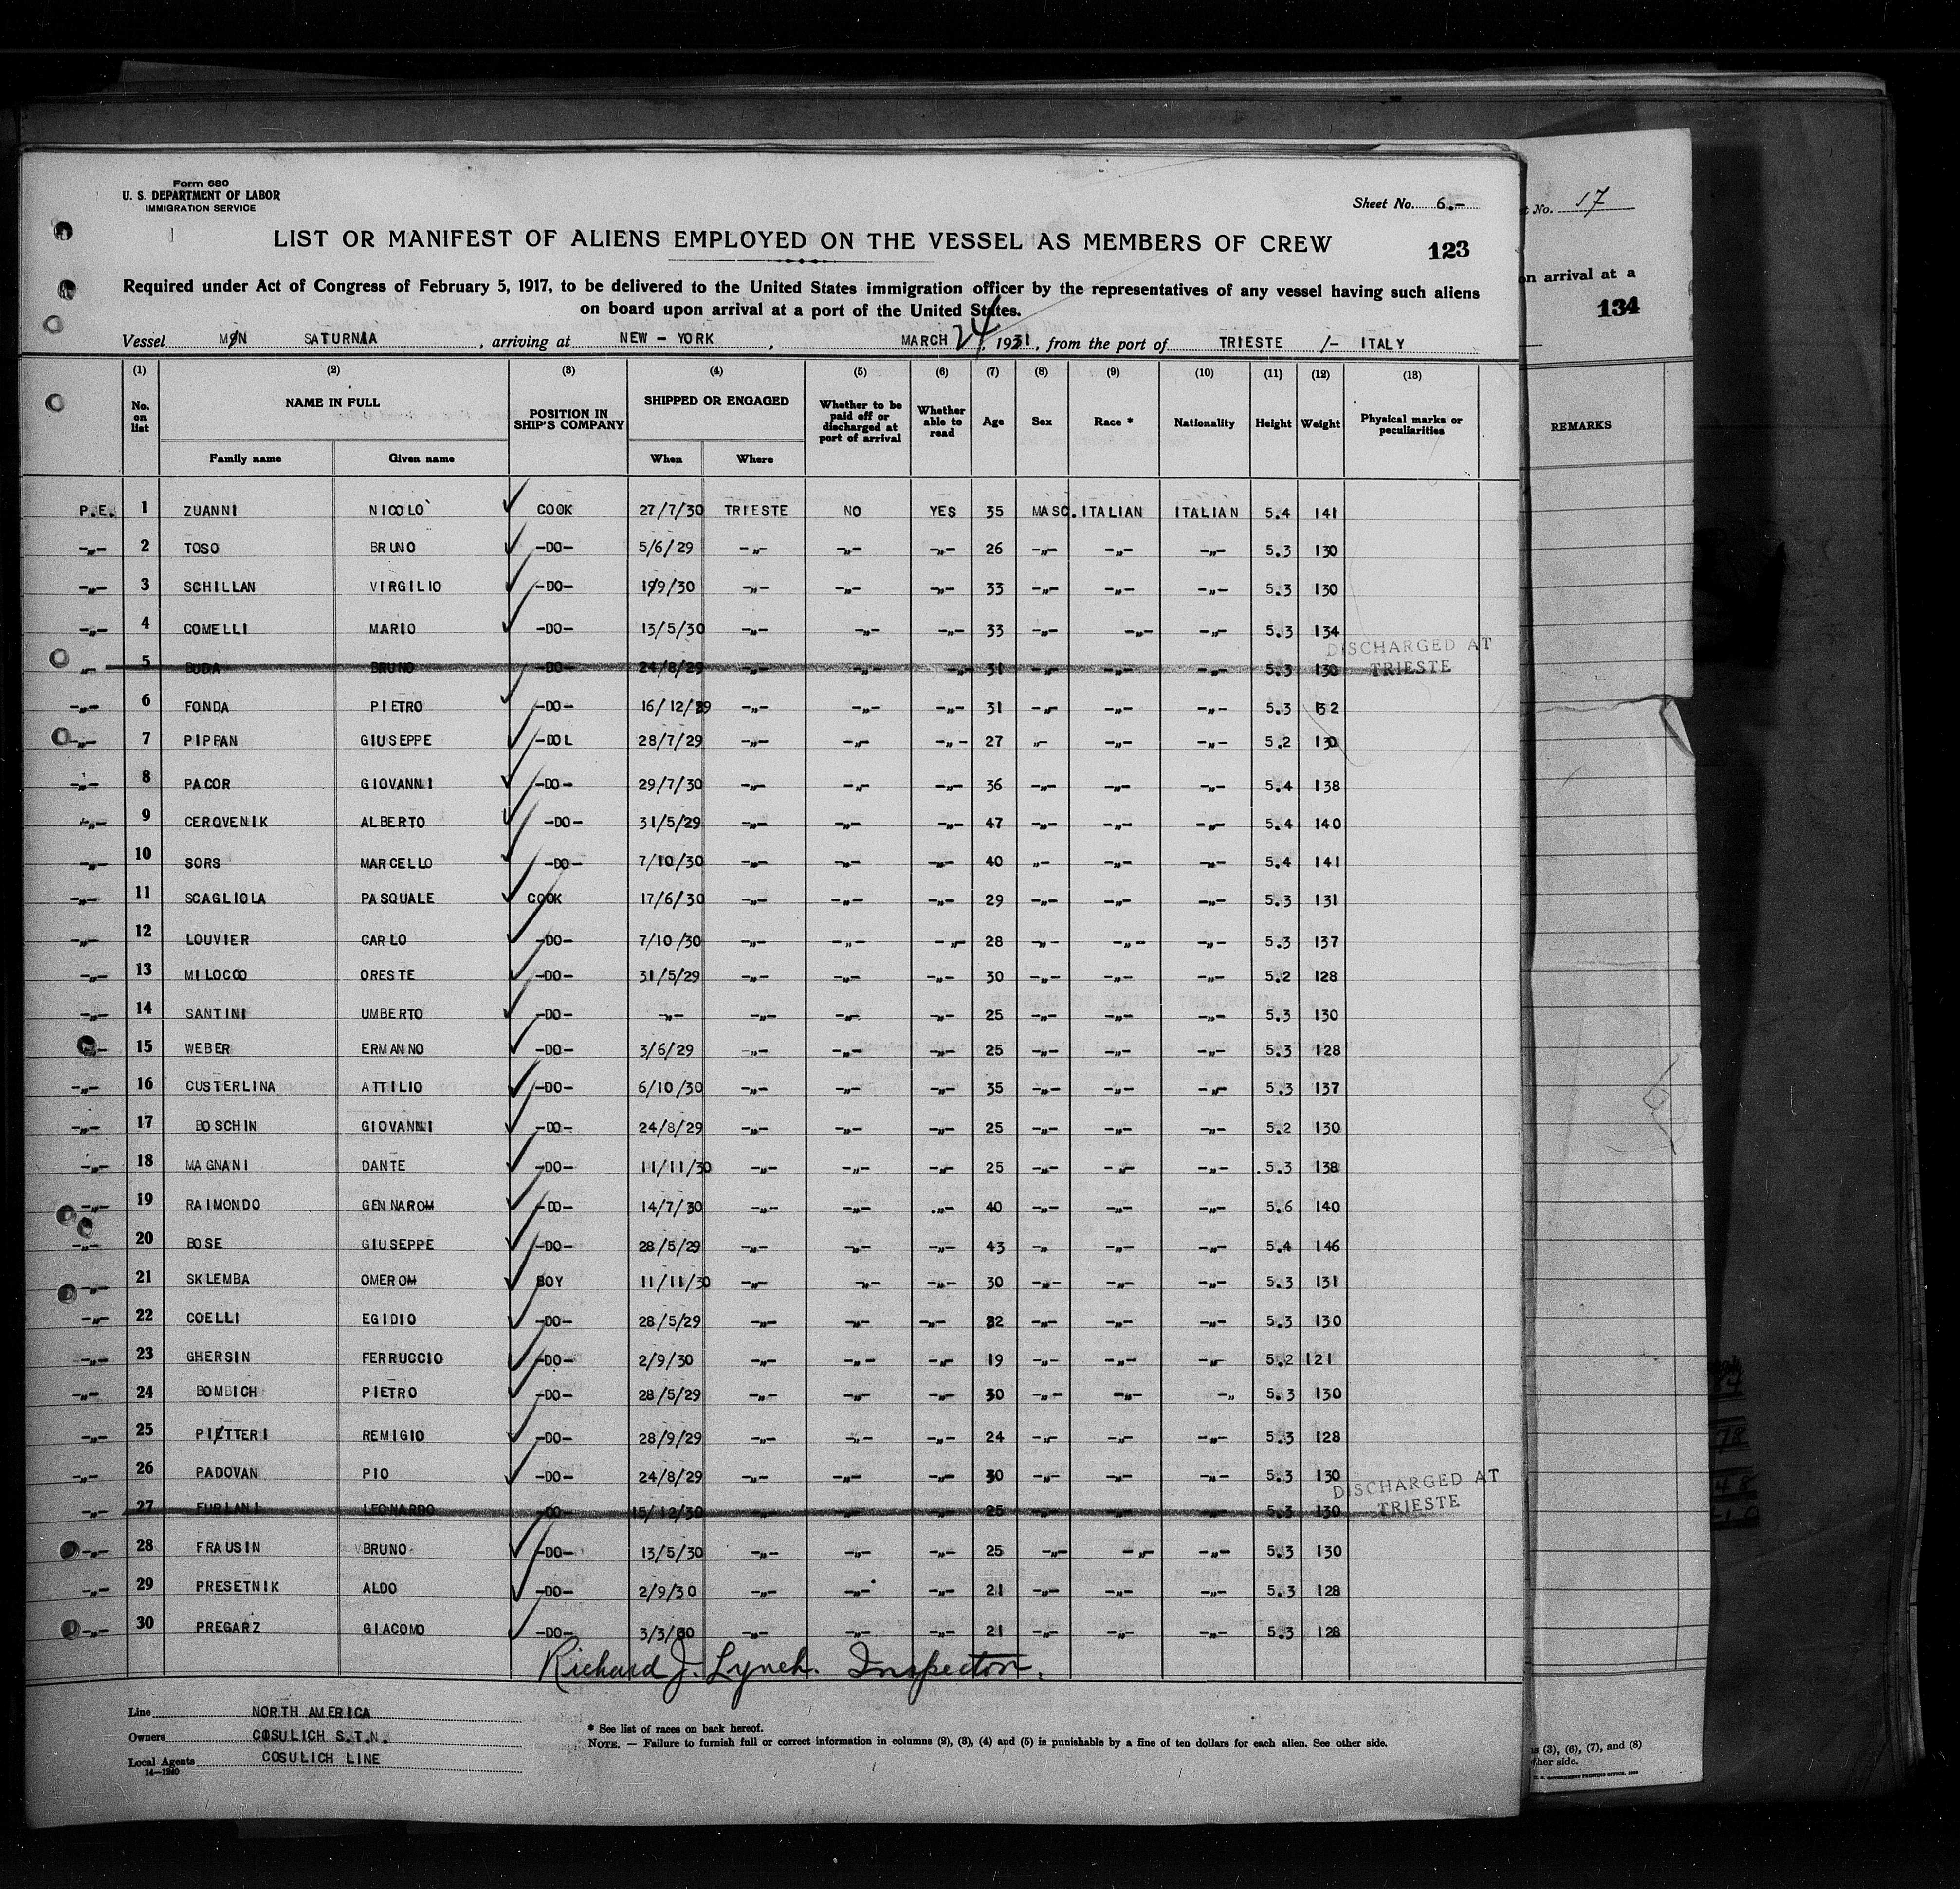 Form 680
U. S. DEPARTMENT OF LABOR
IMMIGRATION SERVICE
Sheet No. 6.-
LIST OR MANIFEST OF ALIENS EMPLOYED ON THE VESSEL AS MEMBERS OF CREW
123
Required under Act of Congress of February 5, 1917, to be delivered to the United States immigration officer by the representatives of any vessel having such aliens
on board upon arrival at a port of the United States.
Vessel M/N SATURNIA, arriving at NEW - YORK, MARCH 24, 1931, from the port of TRIESTE /- ITALY
(1) (2) (3) (4) (5) (6) (7) (8) (9) (10) (11) (12) (13)
No. on list NAME IN FULL Family name Given name POSITION IN SHIP'S COMPANY SHIPPED OR ENGAGED When Where Whether to be paid off or discharged at port of arrival Whether able to read Age Sex Race * Nationality Height Weight Physical marks or peculiarities
P.E. 1 ZUANNI NICOLO' COOK 27/7/30 TRIESTE NO YES 35 MASC. ITALIAN ITALIAN 5.4 141
-"- 2 TOSO BRUNO -DO- 5/6/29 -"- -"- -"- 26 -"- -"- -"- 5.3 130
-"- 3 SCHILLAN VIRGILIO -DO- 19/9/30 -"- -"- -"- 33 -"- -"- -"- 5.3 130
-"- 4 COMELLI MARIO -DO- 13/5/30 -"- -"- -"- 33 -"- -"- -"- 5.3 134
-"- 5 BUDA BRUNO -DO- 24/8/29 -"- -"- -"- 31 -"- -"- -"- 5.3 130 DISCHARGED AT TRIESTE
-"- 6 FONDA PIETRO -DO- 16/12/29 -"- -"- -"- 31 -"- -"- -"- 5.3 132
-"- 7 PIPPAN GIUSEPPE -DOL 28/7/29 -"- -"- -"- 27 "- -"- -"- 5.2 130
-"- 8 PACOR GIOVANNI -DO- 29/7/30 -"- -"- -"- 36 -"- -"- -"- 5.4 138
-"- 9 CERQVENIK ALBERTO -DO- 31/5/29 -"- -"- -"- 47 -"- -"- -"- 5.4 140
-"- 10 SORS MARCELLO -DO- 7/10/30 -"- -"- -"- 40 "- -"- -"- 5.4 141
-"- 11 SCAGLIOLA PASQUALE COOK 17/6/30 -"- -"- -"- 29 -"- -"- -"- 5.3 131
-"- 12 LOUVIER CARLO -DO- 7/10/30 -"- -"- -"- 28 -"- -"- -"- 5.3 137
-"- 13 MILOCCO ORESTE -DO- 31/5/29 -"- -"- -"- 30 -"- -"- -"- 5.2 128
-"- 14 SANTINI UMBERTO -DO- -"- -"- -"- -"- 25 -"- -"- -"- 5.3 130
-"- 15 WEBER ERMANNO -DO- 3/6/29 -"- -"- -"- 25 -"- -"- -"- 5.3 128
-"- 16 CUSTERLINA ATTILIO -DO- 6/10/30 -"- -"- -"- 35 -"- -"- -"- 5.3 137
-"- 17 BOSCHIN GIOVANNI -DO- 24/8/29 -"- -"- -"- 25 -"- -"- -"- 5.2 130
-"- 18 MAGNANI DANTE -DO- 11/11/30 -"- -"- -"- 25 -"- -"- -"- 5.3 138
-"- 19 RAIMONDO GENNAROM -DO- 14/7/30 -"- -"- -"- 40 -"- -"- -"- 5.6 140
-"- 20 BOSE GIUSEPPE -DO- 28/5/29 -"- -"- -"- 43 -" -"- -"- 5.4 146
-"- 21 SKLEMBA OMEROM BOY 11/11/30 -"- -"- -"- 30 -"- -"- -"- 5.3 131
-"- 22 COELLI EGIDIO -DO- 28/5/29 -"- -"- -"- 22 -"- -"- -"- 5.3 130
-"- 23 GHERSIN FERRUCCIO -DO- 2/9/30 -"- -"- -"- 19 -"- -"- -"- 5.2 121
-"- 24 BOMBICH PIETRO -DO- 28/5/29 -"- -"- -"- 30 -"- -"- -" 5.3 130
-"- 25 PIETTERI REMIGIO -DO- 28/9/29 -"- -"- -"- 24 -"- -"- -"- 5.3 128
-"- 26 PADOVAN PIO -DO- 24/8/29 -"- -"- -"- 30 -"- -"- -"- 5.3 130
-"- 27 FURLANI LEONARDO -DO- 15/12/30 -"- -"- -"- 25 -"- -"- -"- 5.3 130 DISCHARGED AT TRIESTE
-"- 28 FRAUSIN BRUNO -DO- 13/5/30 -"- -"- -"- 25 -"- -"- -"- 5.3 130
-"- 29 PRESETNIK ALDO -DO- 2/9/30 -"- -"- -"- 21 -"- -"- -"- 5.3 128
-"- 30 PREGARZ GIACOMO -DO- 3/3/30 -"- -"- -"- 21 -"- -"- -"- 5.3 128
Richard J. Lynch. Inspector.
Line NORTH AMERICA
Owners COSULICH S.T.N.
Local Agents COSULICH LINE
14-1240
* See list of races on back hereof.
NOTE. — Failure to furnish full or correct information in columns (2), (3), (4) and (5) is punishable by a fine of ten dollars for each alien. See other side.
No. 17
on arrival at a
134
REMARKS
(3), (6), (7), and (8)
other side.
U. S. GOVERNMENT PRINTING OFFICE